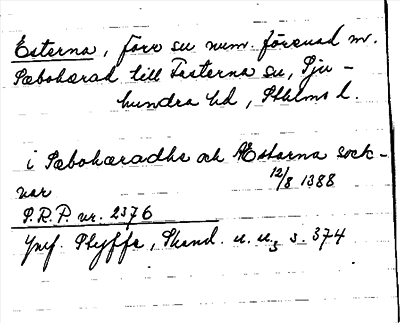 Esterna, förr su num. förenad m.
Sæbohærad till Festerna su, Sju-
hundra hd, Sthlms l.
i Sæbohæradhs och Æstarna sock-
nar 12/8 1388
P.R.P. nr. 2376
Jmf. Styffe, Skand. u. u., s. 374